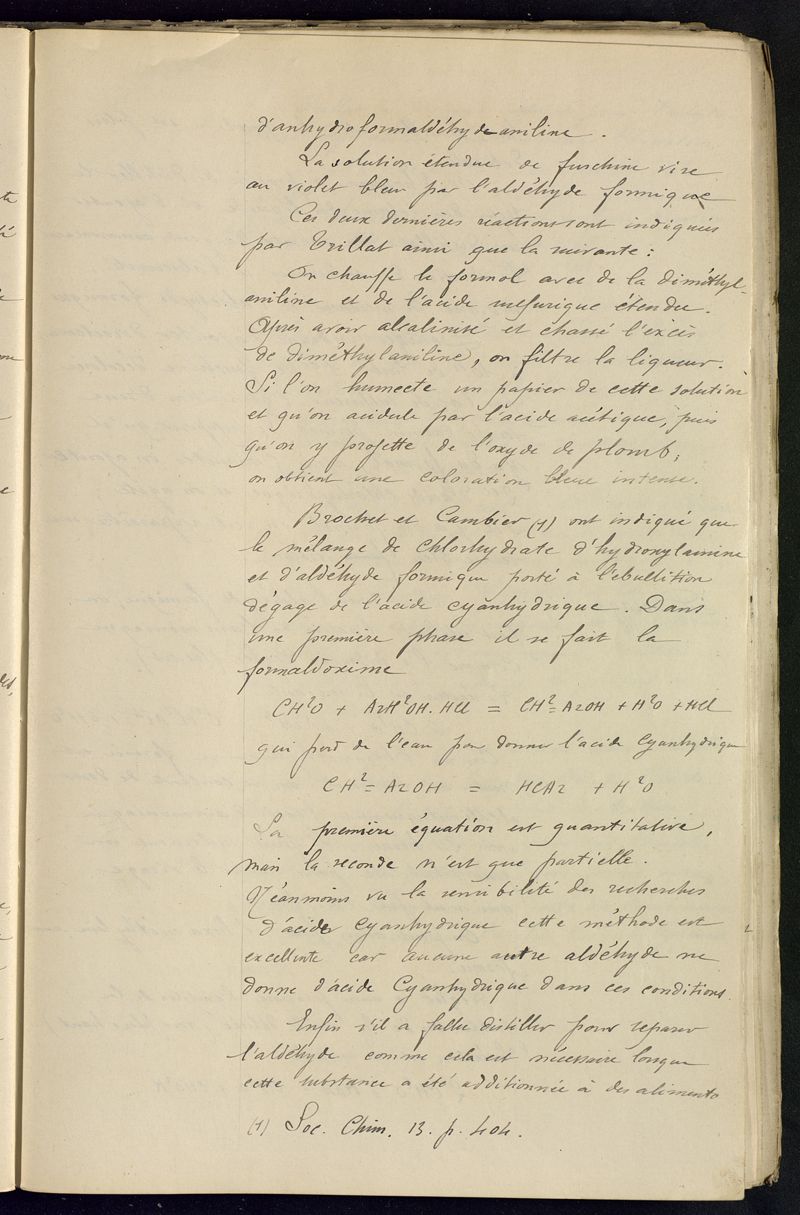 d'anhydroformaldéhyde aniline.
La solution étendue de fuschine vire
au violet bleu par l'aldéhyde formique
Ces deux dernières réactions sont indiquées
par Trillat ainsi que la suivante :
On chauffe le formol avec de la diméthyl-
aniline et de l'acide sulfurique étendu.
Après avoir alcalinisé et chassé l'excès
de diméthylaniline, on filtre la liqueur.
Si l'on humecte un papier de cette solution
et qu'on acidule par l'acide acétique, puis
qu'on y projette de l'oxyde de plomb,
on obtient une coloration bleue intense.
Brochet et Cambier (1) ont indiqué que
le mélange de chlorhydrate d'hydroxylamine
et d'aldéhyde formique porté à l'ebullition
dégage de l'acide cyanhydrique. Dans
une première phase il se fait la
formaldoxime
CH²O + AzH²OH.HCl = CH²=AzOH + H²O + HCl
qui perd de l'eau pour donner l'acide cyanhydrique
CH²=AzOH = HCAz + H²O
La première équation est quantitative,
mais la seconde n'est que partielle.
Néanmoins vu la sensibilité des recherches
d'acide cyanhydrique cette méthode est
excellente car aucune autre aldéhyde ne
donne d'acide Cyanhydrique dans ces conditions.
Enfin s'il a fallu distiller pour séparer
l'aldéhyde comme cela est nécessaire lorsque
cette substance a été additionnée à des aliments
(1) Soc. Chim. 13. p. 404.